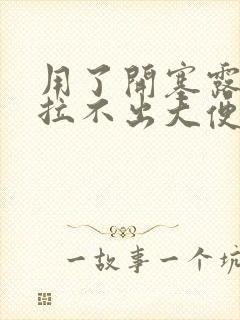 用了開塞露
拉不出大便
一故事一个坑